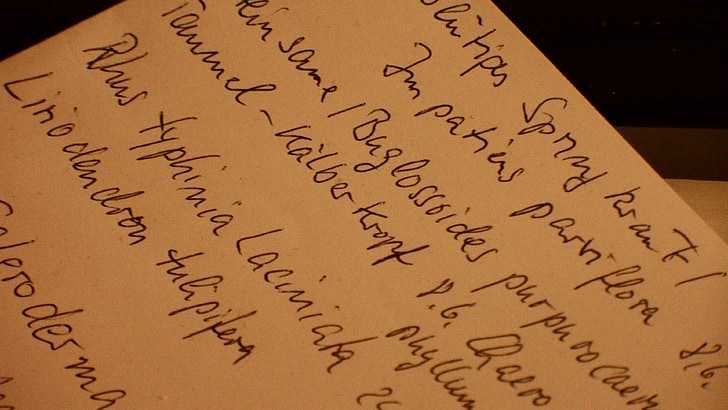 blütiges Springkraut /
Impatiens parviflora 8.6.
einsame / Buglossoides purpurocaeru
Taumel-Kälberkropf 8.6. Chaero
phyllum
Rhus typhinia Laciniata 
Liriodendron tulipifera
Scleroderma